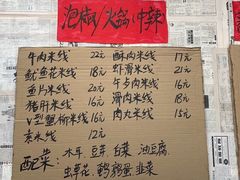 泡椒/火锅/中辣
牛肉米线 22元 酥肉米线 17元
鱿鱼花米线 18元 虾滑米线 21元
鱼片米线 20元 午占肉米线 16元
猪片米线 16元 滑肉米线 18元
V型蟹柳米线 16元 肉丸米线 15元
素米线 12元
配菜: 木耳 豆芽 白菜 油豆腐
虫草花 鹌鹑蛋 韭菜